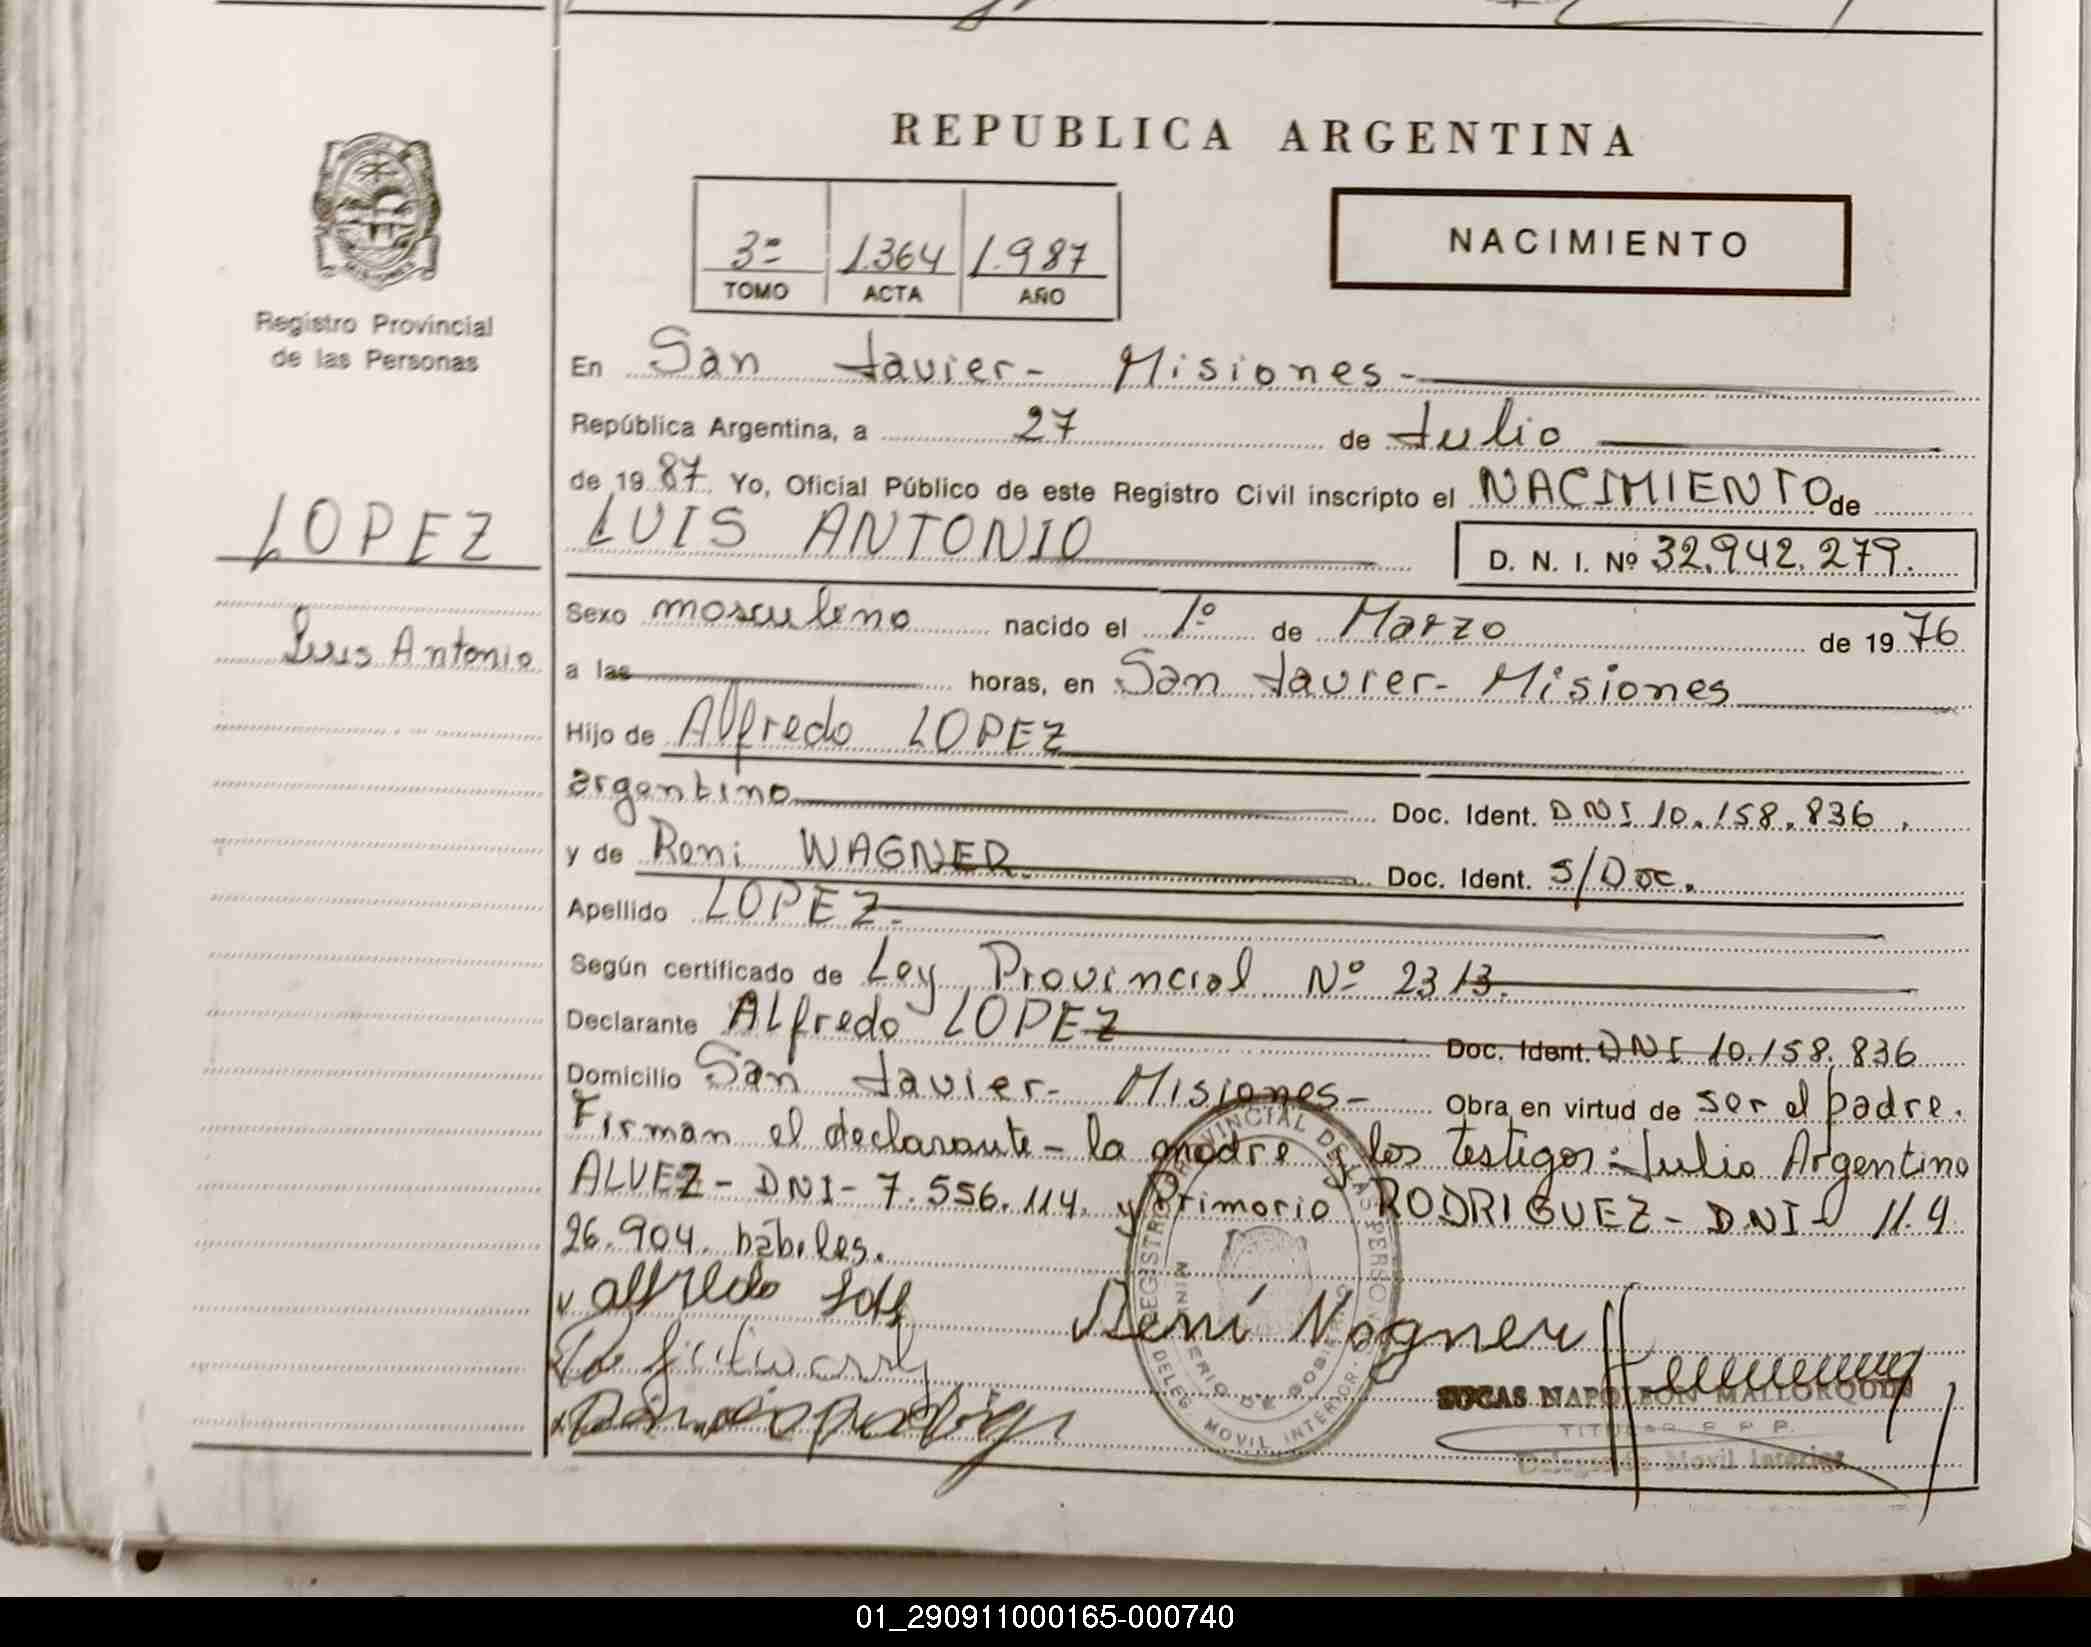 REPUBLICA ARGENTINA
3º 1.364 1.987
TOMO ACTA AÑO
NACIMIENTO
MISIONES
Registro Provincial
de las Personas
LOPEZ
Luis Antonio
En San Javier- Misiones-
República Argentina, a 27 de Julio
de 1987 Yo, Oficial Público de este Registro Civil inscripto el NACIMIENTO de
LUIS ANTONIO
D. N. I. Nº 32.942.279.
Sexo masculino nacido el 1º de Marzo de 1976
a las horas, en San Javier- Misiones
Hijo de Alfredo LOPEZ
argentino Doc. Ident. DNI 10.158.836.
y de Reni WAGNER. Doc. Ident. S/Doc.
Apellido LOPEZ.
Según certificado de Ley Provincial Nº 2313.
Declarante Alfredo LOPEZ Doc. Ident. DNI 10.158.836
Domicilio San Javier- Misiones- Obra en virtud de ser el padre.
Firman el declarante- la madre y los testigos: Julio Argentino
ALVEZ- DNI- 7.556.114. y Primorio RODRIGUEZ- DNI- 11.4
26.904. hábiles.
alfredo
Reni Vogner
REGISTRO PROVINCIAL DE LAS PERSONAS
MINISTERIO DE GOBIERNO
DELEG. MOVIL INTERIOR
NAPOLEON MALLORQUIN
TITULAR R. P. P.
Delegación Movil Interior
01_290911000165-000740